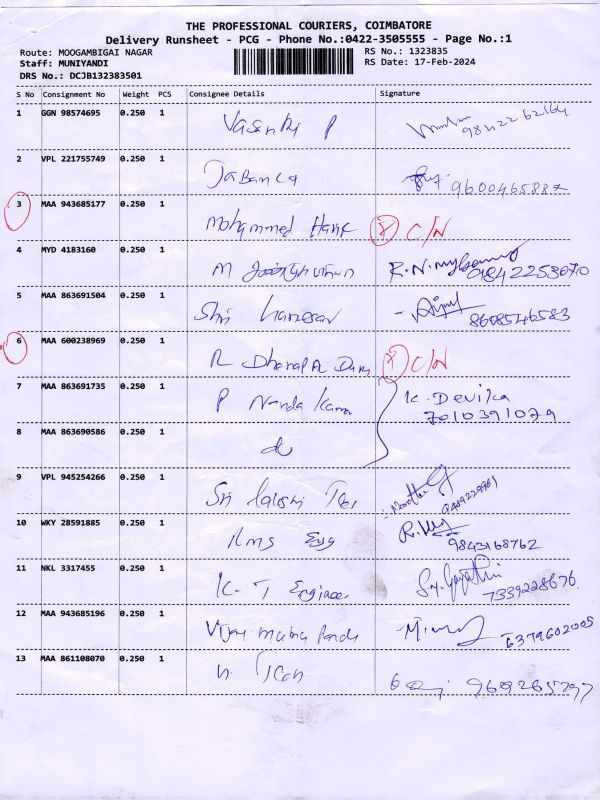 THE PROFESSIONAL COURIERS, COIMBATORE
Delivery Runsheet - PCG - Phone No.:0422-3505555 - Page No.:1
Route: MOOGAMBIGAI NAGAR RS No.: 1323835
Staff: MUNIYANDI RS Date: 17-Feb-2024
DRS No.: DCJB132383501
S No Consignment No Weight PCS Consignee Details Signature
1 GGN 98574695 0.250 1
P
2 VPL 221755749 0.250 1
9600465887
3 MAA 943685177 0.250 1
Mohammed C/N
4 MYD 4183160 0.250 1
M 9842253070
5 MAA 863691504 0.250 1
Shri 8608546583
6 MAA 600238969 0.250 1
R C/N
7 MAA 863691735 0.250 1 K. Devika
P Nanda 7010391079
8 MAA 863690586 0.250 1
do
9 VPL 945254266 0.250 1
Sri
10 WKY 28591885 0.250 1
Rms Eng 9843168762
11 NKL 3317455 0.250 1
K. T 7339228676
12 MAA 943685196 0.250 1
6379602005
13 MAA 861108070 0.250 1
9609265297